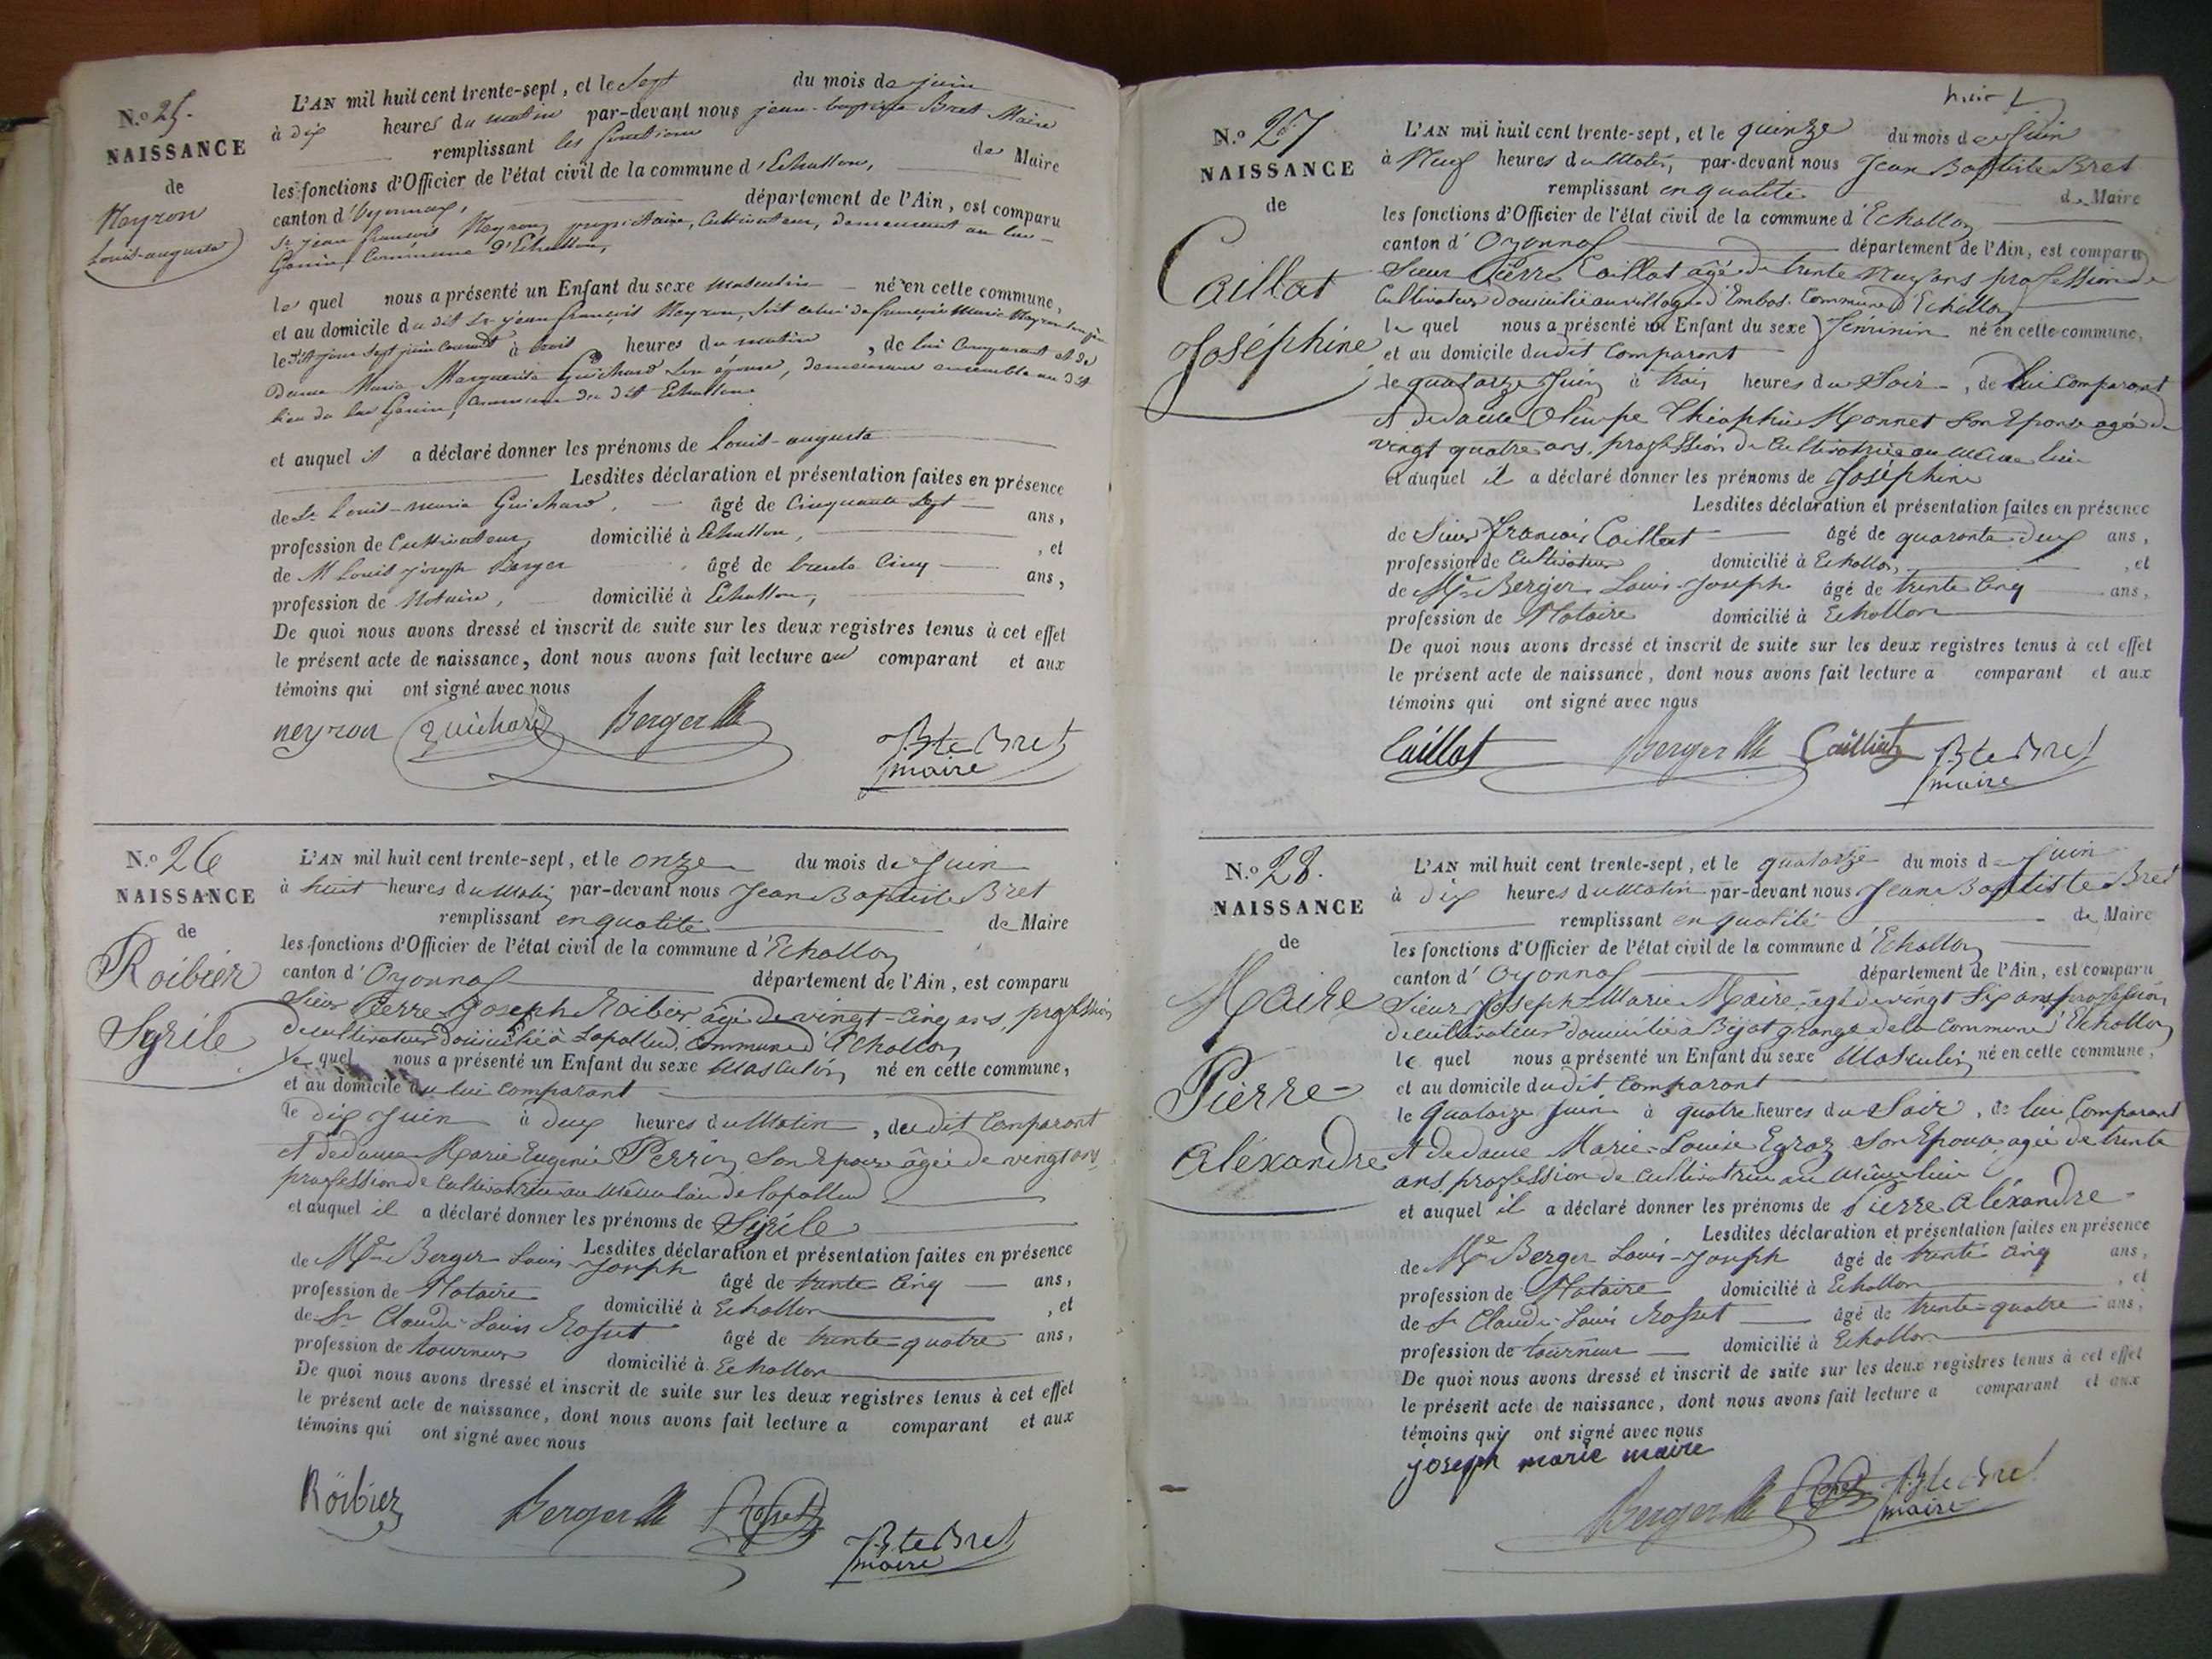 N.o 25.
NAISSANCE
de
Neyron
Louis-auguste
L'AN mil huit cent trente-sept, et le Sept du mois de juin
à dix heures du matin par-devant nous jean-baptiste Bret Maire
remplissant les fonctions de Maire
les fonctions d'Officier de l'état civil de la commune d'Echallon,
canton d'Oyonnax, département de l'Ain, est comparu
Sr jean françois Neyron, propriétaire, Cultivateur, demeurant au lac
Genin, Commune d'Echallon,
le quel nous a présenté un Enfant du sexe masculin né en cette commune,
et au domicile du dit Sr jean françois Neyron, Soit celui de françois Marie Neyron
le dit jour Sept juin courant à trois heures du matin, de lui Comparant et de
Dame Marie Marguerite Guichard Son épouse, demeurant ensemble au dit
lieu du lac Genin, Commune du dit Echallon
et auquel il a déclaré donner les prénoms de Louis-auguste
Lesdites déclaration et présentation faites en présence
de Sr Louis-marie Guichard, âgé de Cinquante Sept ans,
profession de Cultivateur, domicilié à Echallon, et
de M Louis joseph Berger âgé de trente Cinq ans,
profession de Notaire, domicilié à Echallon,
De quoi nous avons dressé et inscrit de suite sur les deux registres tenus à cet effet
le présent acte de naissance, dont nous avons fait lecture au comparant et aux
témoins qui ont signé avec nous
neyron Guichard Berger Bte Bret
maire
N.o 26
NAISSANCE
de
Roibier
Syrile
L'AN mil huit cent trente-sept, et le onze du mois de Juin
à huit heures du Matin par-devant nous Jean Baptiste Bret
remplissant en qualité de Maire
les fonctions d'Officier de l'état civil de la commune d'Echallon
canton d'Oyonnax département de l'Ain, est comparu
Sieur Pierre Joseph Roibier âgé de vingt-cinq ans, profession
de cultivateur domicilié à Lapallud, commune d'Echallon
le quel nous a présenté un Enfant du sexe Masculin né en cette commune,
et au domicile du lui comparant
le dix Juin à deux heures du Matin, du dit Comparant
et de dame Marie Eugenie Perrin Son Epouse âgée de vingt ans
profession de Cultivatrice au même lieu de lapallud
et auquel il a déclaré donner les prénoms de Syrile
Lesdites déclaration et présentation faites en présence
de Me Berger Louis Joseph âgé de trente Cinq ans,
profession de Notaire domicilié à Echallon, et
de Sr Claude-Louis Rosset âgé de trente-quatre ans,
profession de tourneur domicilié à Echallon
De quoi nous avons dressé et inscrit de suite sur les deux registres tenus à cet effet
le présent acte de naissance, dont nous avons fait lecture a comparant et aux
témoins qui ont signé avec nous
Roibier Berger Rosset Bte Bret
maire
huit
N.o 27
NAISSANCE
de
Caillat
Joséphine
L'AN mil huit cent trente-sept, et le quinze du mois de Juin
à Neuf heures du Matin, par-devant nous Jean Baptiste Bret
remplissant en qualité de Maire
les fonctions d'Officier de l'état civil de la commune d'Echallon
canton d'Oyonnax département de l'Ain, est comparu
Sieur Pierre Caillat âgé de trente Neuf ans profession de
Cultivateur domicilié au village d'Embos. Commune d'Echallon
le quel nous a présenté un Enfant du sexe féminin né en cette commune,
et au domicile du dit Comparant
le quatorze Juin à trois heures du Soir, de lui Comparant
et de dame Olimpe Théophie Monnet Son Epouse agée de
vingt quatre ans, profession de Cultivatrice au même lieu
et auquel il a déclaré donner les prénoms de Joséphine
Lesdites déclaration et présentation faites en présence
de Sieur françois Caillat âgé de quarante-deux ans,
profession de Cultivateur domicilié à Echallon, et
de Me Berger Louis-Joseph âgé de trente Cinq ans,
profession de Notaire domicilié à Echallon
De quoi nous avons dressé et inscrit de suite sur les deux registres tenus à cet effet
le présent acte de naissance, dont nous avons fait lecture a comparant et aux
témoins qui ont signé avec nous
Caillat Berger Caillat Bte Bret
maire
N.o 28.
NAISSANCE
de
Maire
Pierre-
Aléxandre
L'AN mil huit cent trente-sept, et le quatorze du mois de Juin
à dix heures du Matin par-devant nous Jean Baptiste Bret
remplissant en qualité de Maire
les fonctions d'Officier de l'état civil de la commune d'Echallon
canton d'Oyonnax département de l'Ain, est comparu
Sieur Joseph-Marie Maire, agé de vingt Six ans profession
de cultivateur domicilié à Bijat grange de la Commune d'Echallon
le quel nous a présenté un Enfant du sexe Masculin né en cette commune,
et au domicile du dit Comparant
le Quatorze Juin à quatre heures du Soir, de lui Comparant
et de dame Marie-Louise Egraz Son Epouse agée de trente
ans, profession de Cultivatrice au même lieu
et auquel il a déclaré donner les prénoms de Pierre aléxandre
Lesdites déclaration et présentation faites en présence
de Me Berger Louis-Joseph âgé de trente cinq ans,
profession de Notaire domicilié à Echallon, et
de Sr Claude-Louis Rosset âgé de trente-quatre ans,
profession de tourneur domicilié à Echallon
De quoi nous avons dressé et inscrit de suite sur les deux registres tenus à cet effet
le présent acte de naissance, dont nous avons fait lecture a comparant et aux
témoins qui ont signé avec nous
joseph marie maire
Berger Rosset Bte Bret
maire